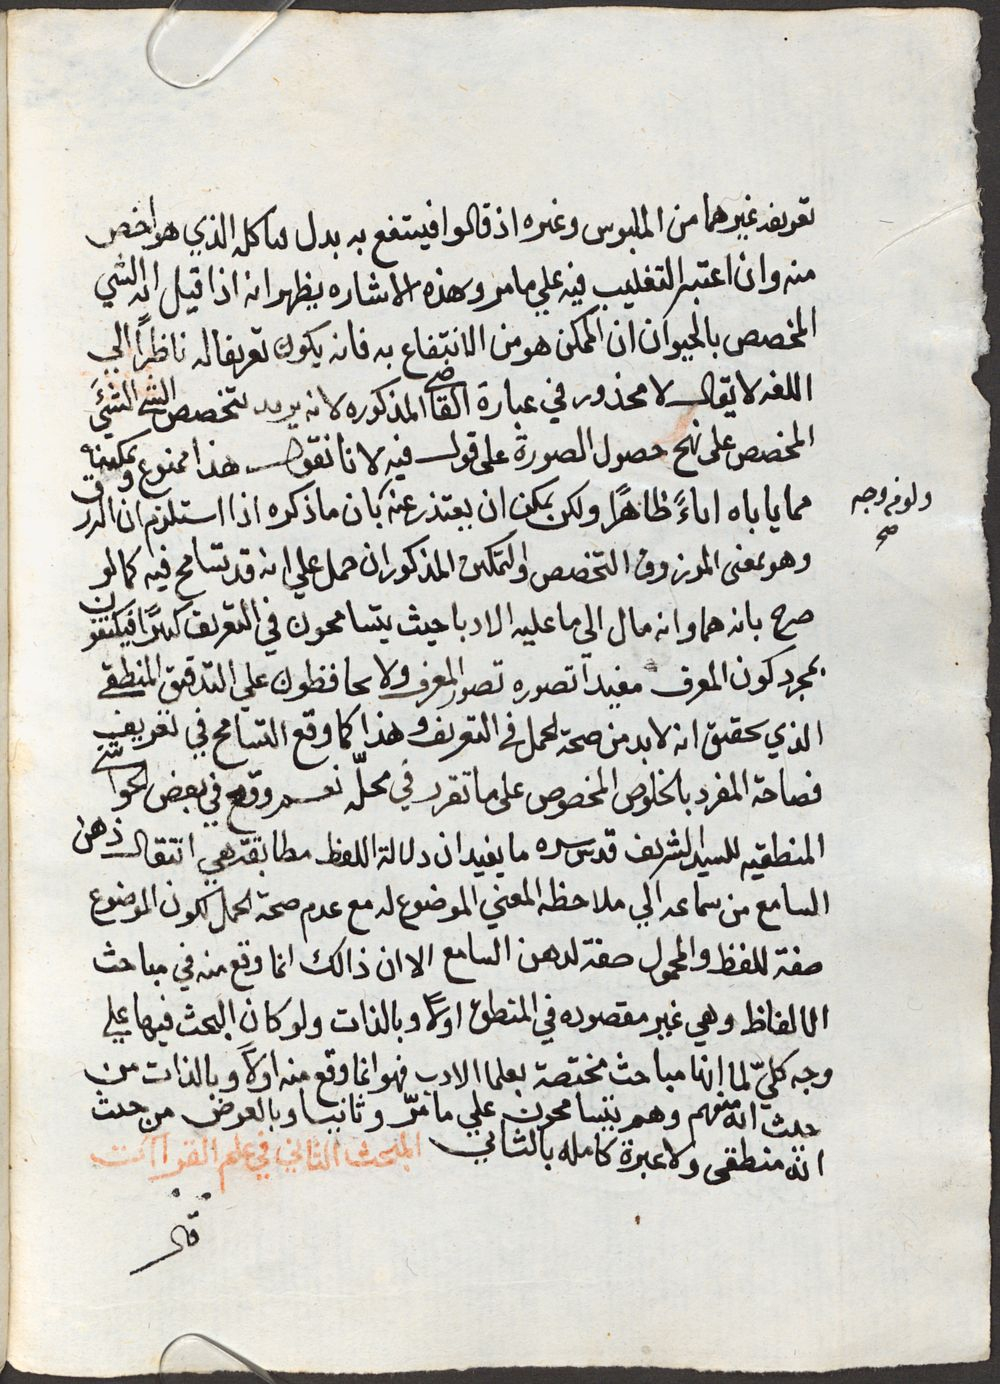 تعريفه غيرهما من الملبوس وغيره اذ قالوا فينتفع به بدل ياكله الذي هو اخص
منه وان اعتبر التغليب فيه علي مامر وبهذه الاشاره يظهر انه اذا قيل انه الشي
المخصص بالحيوان ان الممكن هو من الانتفاع به فانه يكون تعريفا له ناظرًا الي
اللغه لا يقال لا محذور في عبارة القاضي المذكوره لانه يريد بتخصص الشي الشئ
المخصص على نهج حصول الصورة على قول فيه لانا نقول هذا ممنوع وتمكينه
مما ياباه اباءً ظاهرًا ولكن يمكن ان يعتذر عنه بان ماذكره اذا استلزم ان الرزق
ولو في وجه
صح
وهو بمعنى المرزوق التخصص والتمكين المذكوران حمل علي انه قد تسامح فيه كما لو
صرح بانه هما وانه مال الي ما عليه الادبا حيث يتسامحون في التعريف كثيرًا فيكتفون
بمجرد كون المعرف مفيدًا تصوره تصور المعرف ولا يحافظون علي التدقيق المنطقي
الذي يحقق انه لابد من صحة الحمل في التعريف وهذا كما وقع التسامح في تعريف
فصاحة المفرد بالخلوص المخصوص على ما تقرر في محلّه نعم وقع في بعض الحواشي
المنطقيه للسيد الشريف قدس سره ما يفيد ان دلالة اللفظ مطابقة هي انتقال ذهن
السامع من سماعه الي ملاحظة المعني الموضوع له مع عدم صحة الحمل لكون الموضوع
صفة للفظ والمحمول صفة لذهن السامع الا ان ذالك انما وقع منه في مباحث
الالفاظ وهي غير مقصوده في المنطق اولًا وبالذات ولو كان البحث فيها علي
وجه كليّ لما انها مباحث مختصة بعلما الادب فهو انما وقع منه اولًا وبالذات من
حيث انه منهم وهم يتسامحون علي ما مرّ وثانيا وبالعرض من حيث
انه منطقى ولا عبرة كامله بالثاني المبحث الثاني في علم القراآت
قال